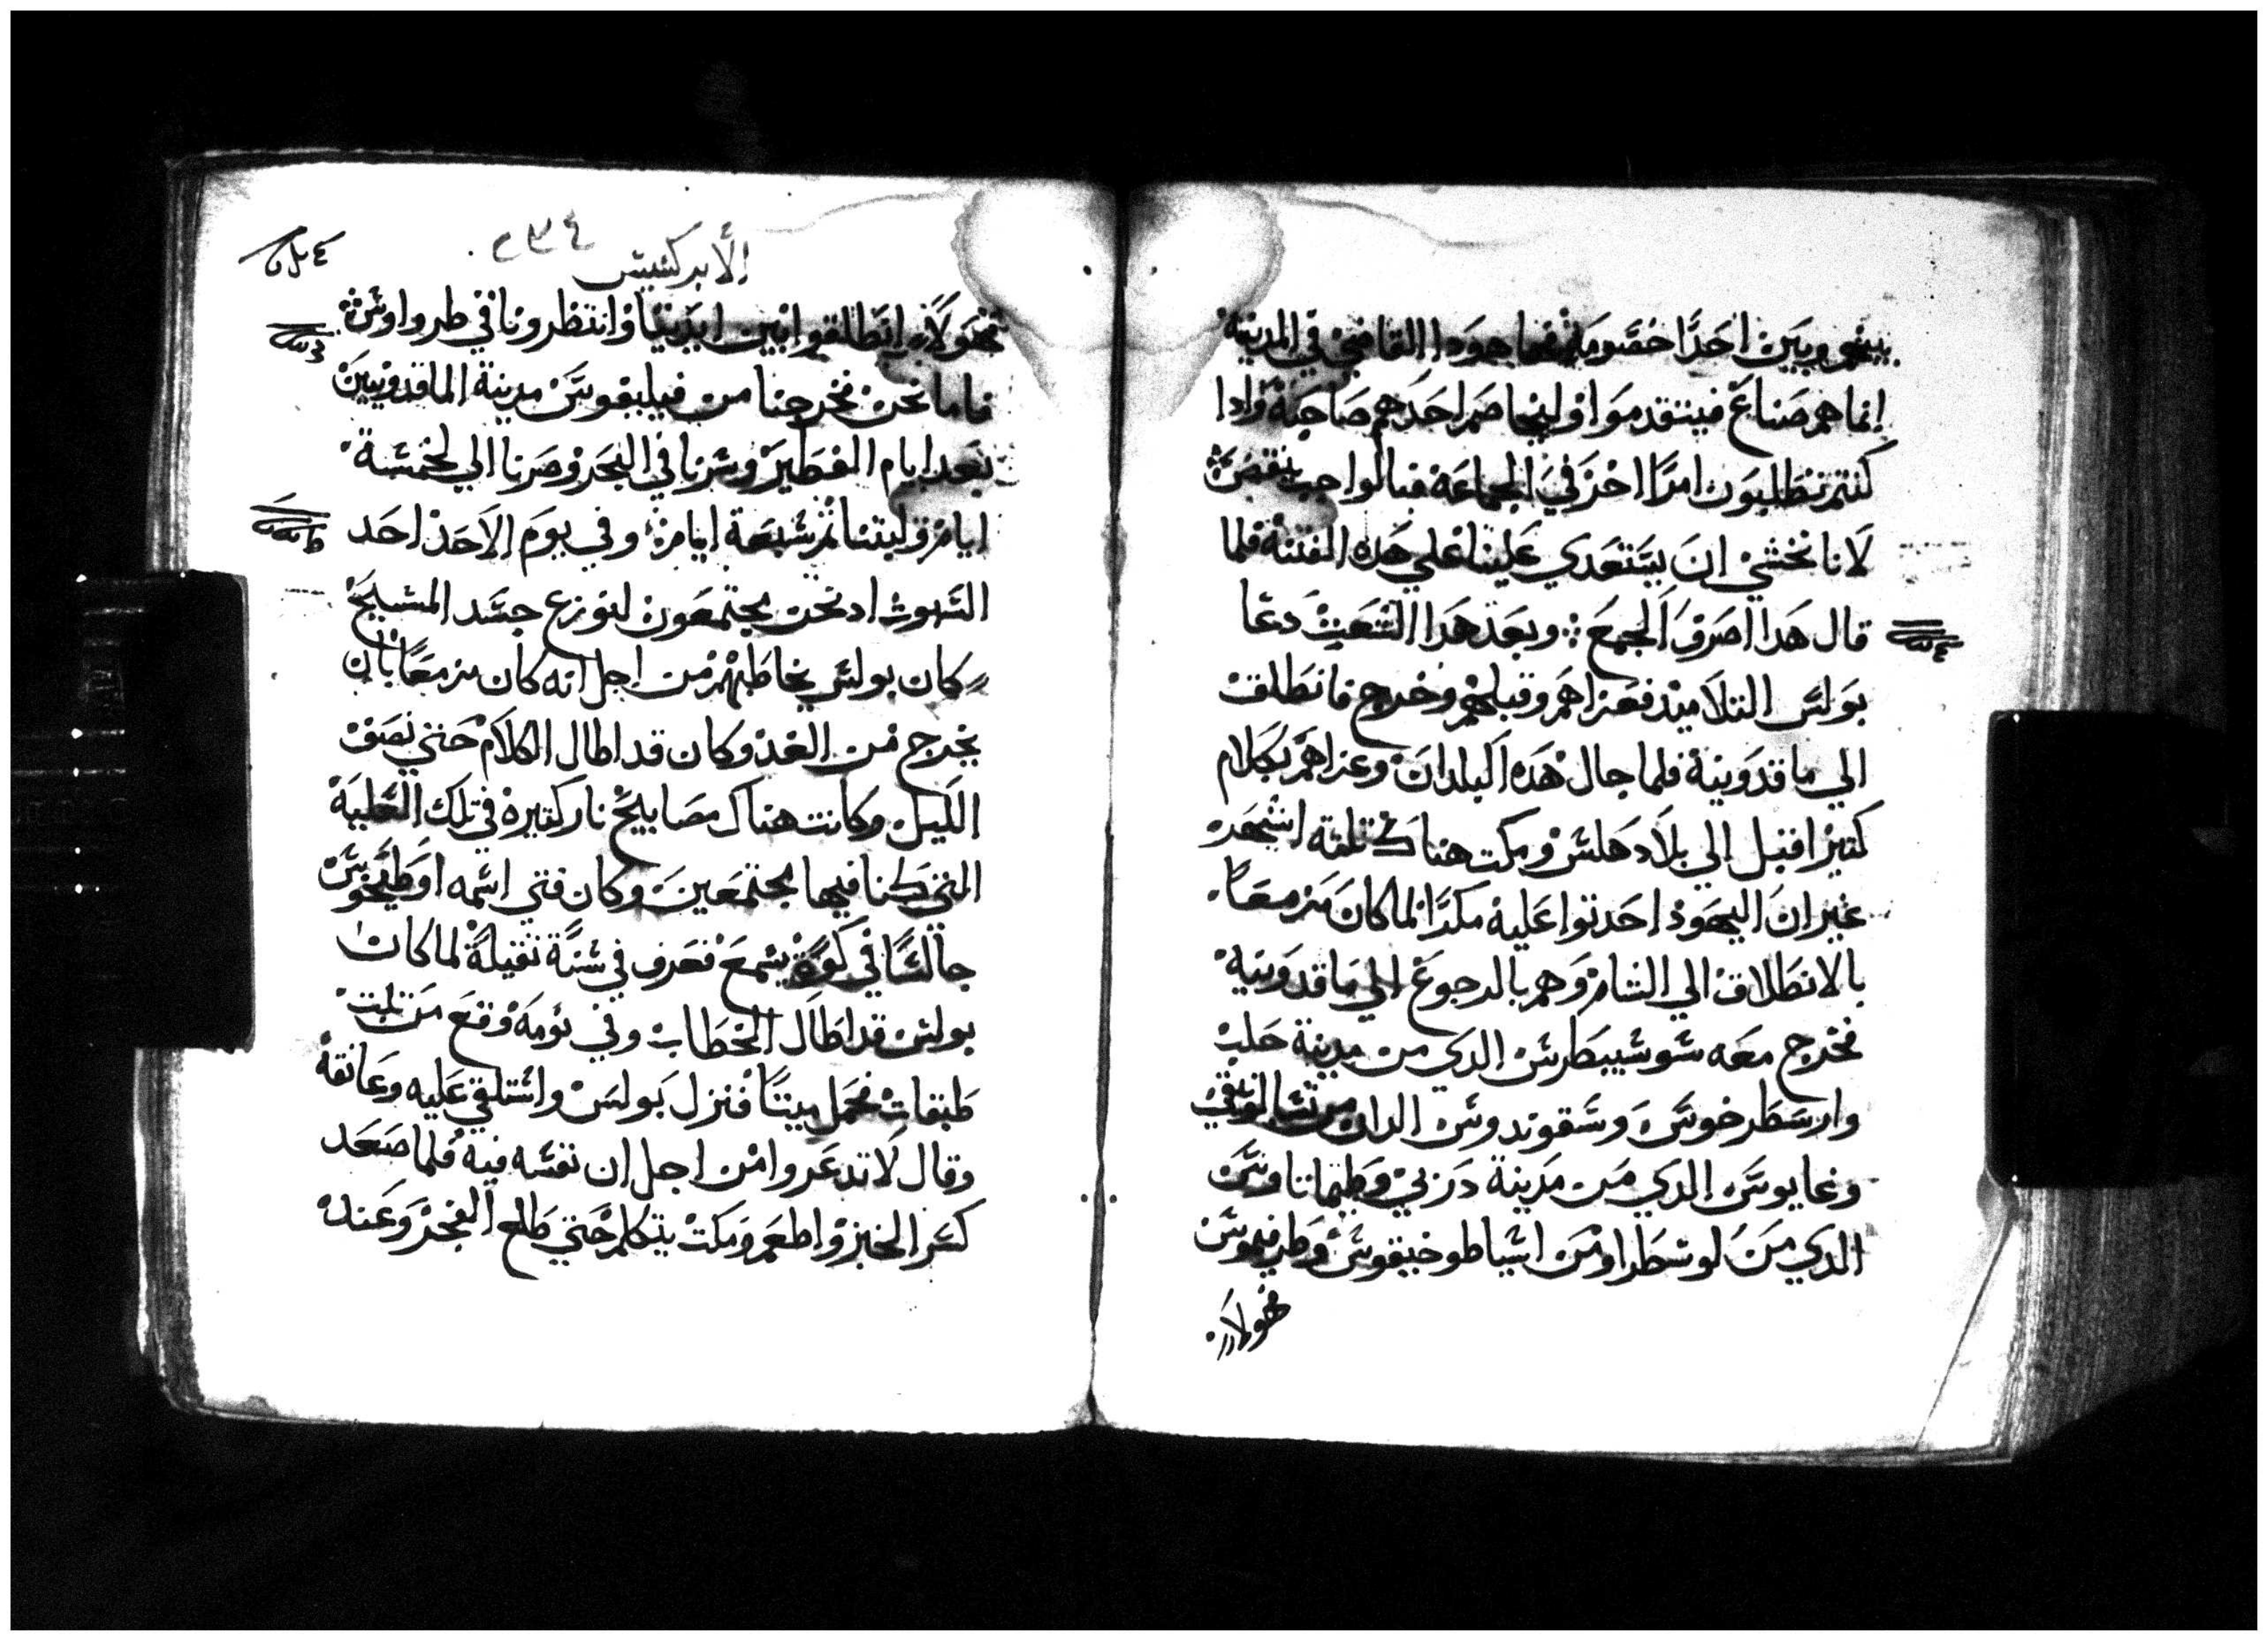 بينهم وبين احدًا خصومة فها هودا القاضي في المدينة
إنما هم صناع فيتقدموا وليخاصم احدهم صاحبه وادا
كنتم تطلبون امرًا اخر في الجماعة فبالواجب ينقضي
لانا نخشي ان يستعدي علينا علي هده الفتنة فلما
قال هدا صرف الجمع ⁘ وبعد هدا الشعت دعا
بولس التلاميد فعزاهم وقبلهم وخرج فانطلق
الي ماقدونية فلما جال هده البلدان وعزاهم بكلام
كتير اقبل إلي بلاد هلس ومكت هناك تلتة اشهر
غير ان اليهود احدتوا عليه مكرًا لما كان مزمعًا
بالانطلاق الي الشام وهم بالرجوع الي ماقدونية
فخرج معه سوسيبطرس الدي من مدينة حلب
وارسطرخوس وسقوندوس الدان من تسالونيقي
وغايوس الدي من مدينة دربي وطيماتاوس
الدي من لوسطرا ومن اسيا طوخيقوس وطرفيموس
فهولاي
٢٣٤
الأبركسيس
فهولاي انطلقوا بين ايدينا وانتظرونا في طرواوس
فاما نحن فخرجنا من فيليبقوس مدينة الماقدونيين
بعد ايام الفطير وسرنا في البحر وصرنا الي لخمسة
ايام ولبتنا تم سبعة ايام وفي يوم الاحد احد
السبوت اد نحن مجتمعون لنوزع جسد المسيح
كان بولس يخاطبهم من اجل انه كان مزمعًا بان
يخرج من الغد وكان قد اطال الكلام حتي نصف
الليل وكانت هناك مصابيح نار كتيرة في تلك العلية
التي كنا فيها مجتمعين وكان فتي اسمه اوطيخوس
جالسًا في كوة يسمع فغرق في سنة تقيلة لما كان
بولس قد اطال الخطاب وفي نومه وقع من تلت
طبقات فحمل ميتًا فنزل بولس واستلقي عليه وعانقه
وقال لا تدعروا من اجل ان نفسه فيه فلما صعد
كسر الخبز واطعم ومكت يتكلم حتي طلع الفجر وعند